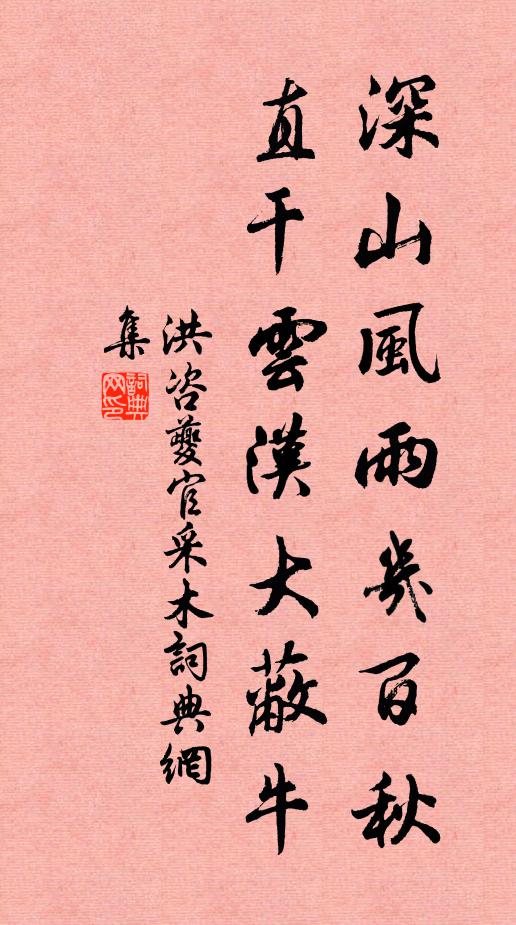 深山風雨幾百秋
直干雲漢大蔽牛
洪咨夔官采木詞典網
集
詞典
网印